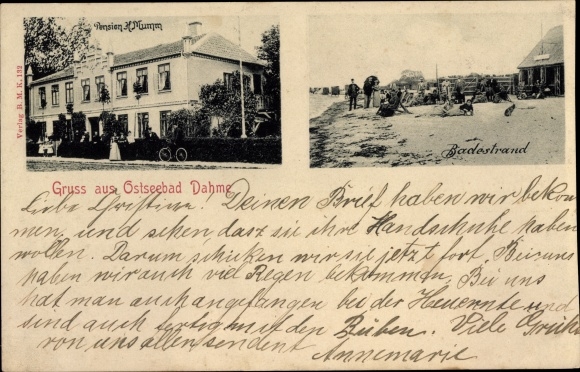 Pension H. Mumm
Verlag B. M. K. 132
Badestrand
Gruss aus Ostseebad Dahme
Liebe Christine! Deinen Brief haben wir bekom
men, und sehen dasz sie ihre Handschuhe haben
wollen. Darum schicken wir sie jetzt fort. Bei uns
haben wir auch viel Regen bekommen. Bei uns
hat man auch angefangen bei der Heuernte und
sind auch fertig mit den Rüben. Viele Grüße
von uns allen sendent
Annemarie